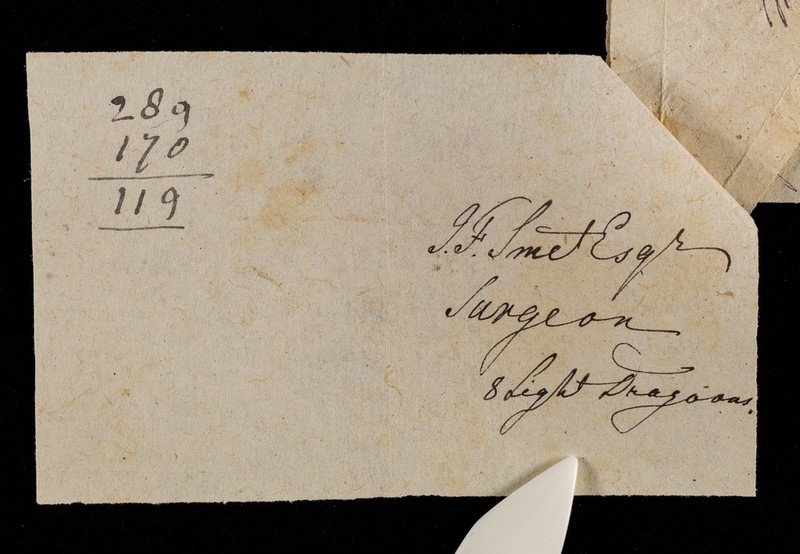 289
170
119
J.F. Smet Esqr
Surgeon
8 Light Dragoons.